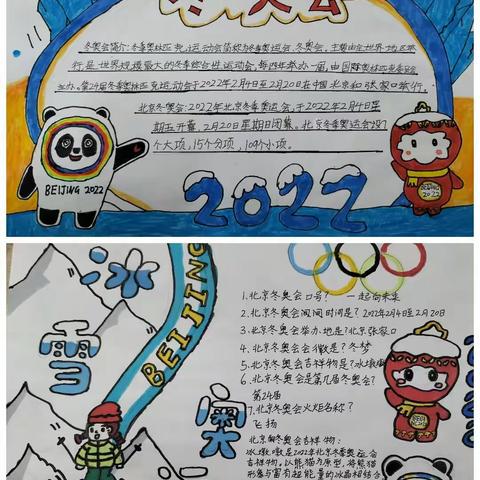 冬奥会
冬奥会简介:冬季奥林匹克运动会简称为冬季奥运会、冬奥会。主要由全世界地区举
行,是世界规模最大的冬季综合性运动会,每四年举办一届,由国际奥林匹克委员会
主办。第24届冬季奥林匹克运动会于2022年2月4日至2月20日在中国北京和张家口举行。
北京冬奥会:2022年北京冬季奥运会,于2022年2月4日星
期五开幕,2月20日星期日闭幕。北京冬季奥运会设7
个大项,15个分项,109个小项。
BEIJING 2022
BEIJING
2022
2022
冰
雪
BEIJING
1.北京冬奥会口号? 一起向未来
2.北京冬奥会时间是? 2022年2月4日至2月20日
3.北京冬奥会举办地是?北京张家口
4.北京冬奥会会徽是?冬梦
5.北京冬奥会吉祥物是?冰墩墩
6.北京冬奥会是第几届冬奥会?
第24届
7.北京冬奥会火炬名称?
飞扬
北京冬奥会吉祥物:
冰墩墩是2022年北京冬季奥运会
吉祥物。以熊猫为原型,将熊猫
形象与富有超能量的冰晶相结合